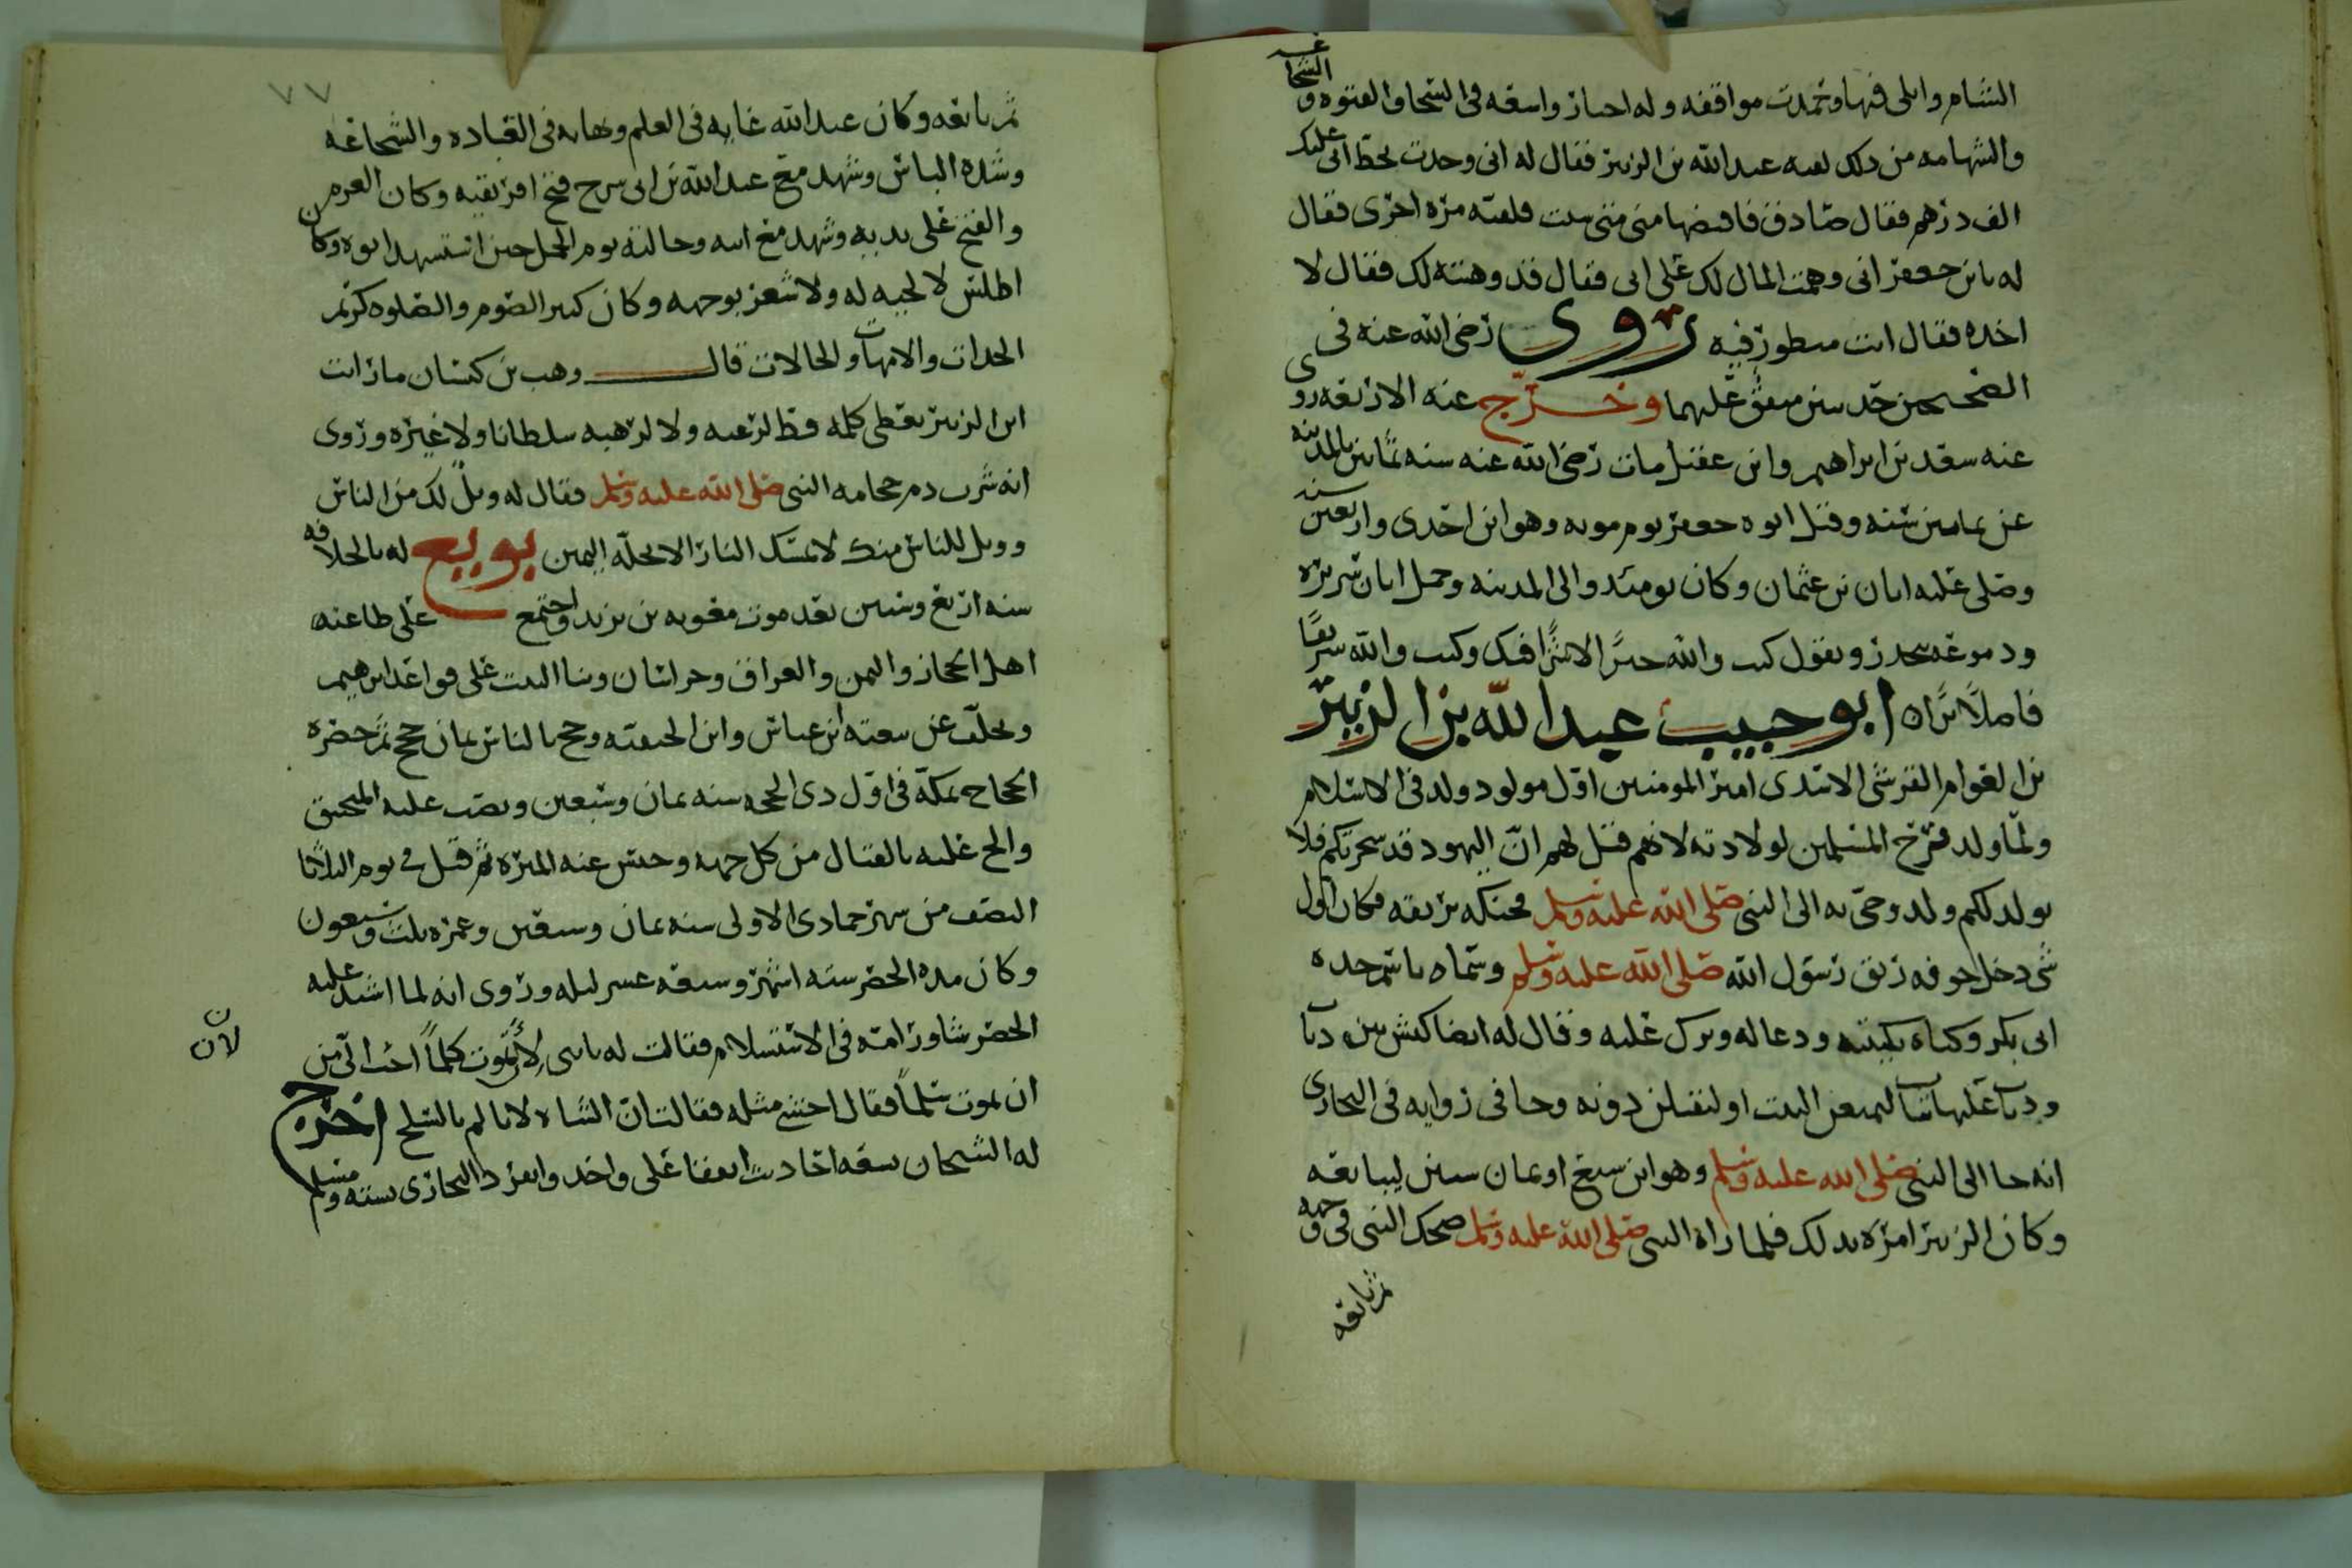 الشام وابلى فيها وحمدت مواقفه وله اخبار واسعه في السخا والفتوه والشجاعه
والشهامه من ذلك لقيه عبد الله بن الزبير فقال له اني وجدت بخط ابي عليك
الف درهم فقال صادق فاقبضها مني متى شيت فلقيه مره اخرى فقال
له يا بن جعفر اني وهمت المال لك على ابي فقال قد وهبته لك فقال لا
اخذه فقال انت منظور فيه روى رضي الله عنه في
الصحيحين حديثين متفق عليهما وخرج عنه الاربعه روى
عنه سعد بن ابراهيم وابن عقيل مات رضي الله عنه سنه ثمانين بالمدينه
عن ثمانين سنه وقتل ابوه جعفر يوم موته وهو ابن احدى واربعين سنه
وصلى عليه ابان بن عثمان وكان يومئذ والي المدينه وحمل ابان سريره
ودموعه تنحدر ويقول كنت والله خيرًا لا شرًا فيك وكنت والله شريفًا
فاضلًا برًا ابو حبيب عبد الله بن الزبير
بن العوام القرشي الاسدي امير المومنين اول مولود ولد في الاسلام
ولما ولد فرح المسلمين لولادته لانهم قيل لهم ان اليهود قد سحرتكم فلا
يولد لكم ولد وجي به الى النبي صلى الله عليه وسلم فحنكه بريقه فكان اول
شي دخل جوفه ريق رسول الله صلى الله عليه وسلم وسماه باسم جده
ابي بكر وكناه بكنيته ودعا له وبرك عليه وقال له ايضا كبش بين ذياب
وذياب عليها ثياب ليمنعن البيت او ليقتلن دونه وجا في روايه في البخاري
انه جا الى النبي صلى الله عليه وسلم وهو ابن سبع او ثمان سنين ليبايعه
وكان الزبير امره بذلك فلما راه النبي صلى الله عليه وسلم ضحك النبي في وجهه
ثم بايعه
٧٧
ثم بايعه وكان عبد الله غايه في العلم ونهايه في العباده والشجاعه
وشده الباس وشهد مع عبد الله بن ابي سرح فتح افريقيه وكان العزم من
والفتح على يديه وشهد مع ابيه وخالته يوم الجمل حين استشهد ابوه وكان
اطلس لا لحيه له ولا شعر بوجهه وكان كثير الصوم والصلوه كريم
الجدات والامهات والخالات قال وهب بن كيسان ما رايت
ابن الزبير يعطي كلمه قط لرغبه ولا لرهبه سلطانا ولا غيره وروى
انه شرب دم حجامه النبي صلى الله عليه وسلم فقال له ويل لك من الناس
وويل للناس منك لا تمسك النار الا تحله اليمين بويع له بالخلافه
سنه اربع وستين بعد موت معويه بن يزيد واجتمع على طاعته
اهل الحجاز واليمن والعراق وخراسان وبنا البيت على قواعد ابراهيم
وتخلف عن بيعته ابن عباس وابن الحنفيه وحج بالناس ثمان حجج ثم حضره
الحجاج بمكة في اول ذي الحجه سنه ثمان وسبعين ونصب عليه المنجنيق
والح عليه بالقتال من كل جهه وحبس عنه الميره ثم قتل في يوم الثلاثا
النصف من شهر جمادى الاولى سنه ثمان وسبعين وعمره ثلث وسبعون
وكان مده الحصر سته اشهر وسبعه عشر ليله وروى انه لما اشتد عليه
الحصر شاور امه في الاستسلام فقالت له يا بني لأن تموت كلمًا احب الي من
لان
ان تموت سلمًا فقال اخشى مثله فقالت ان الشاه لا تالم بالسلخ اخرج
له الشيخان سبعه احاديث اتفقا على واحد وانفرد البخاري بسته ومسلم